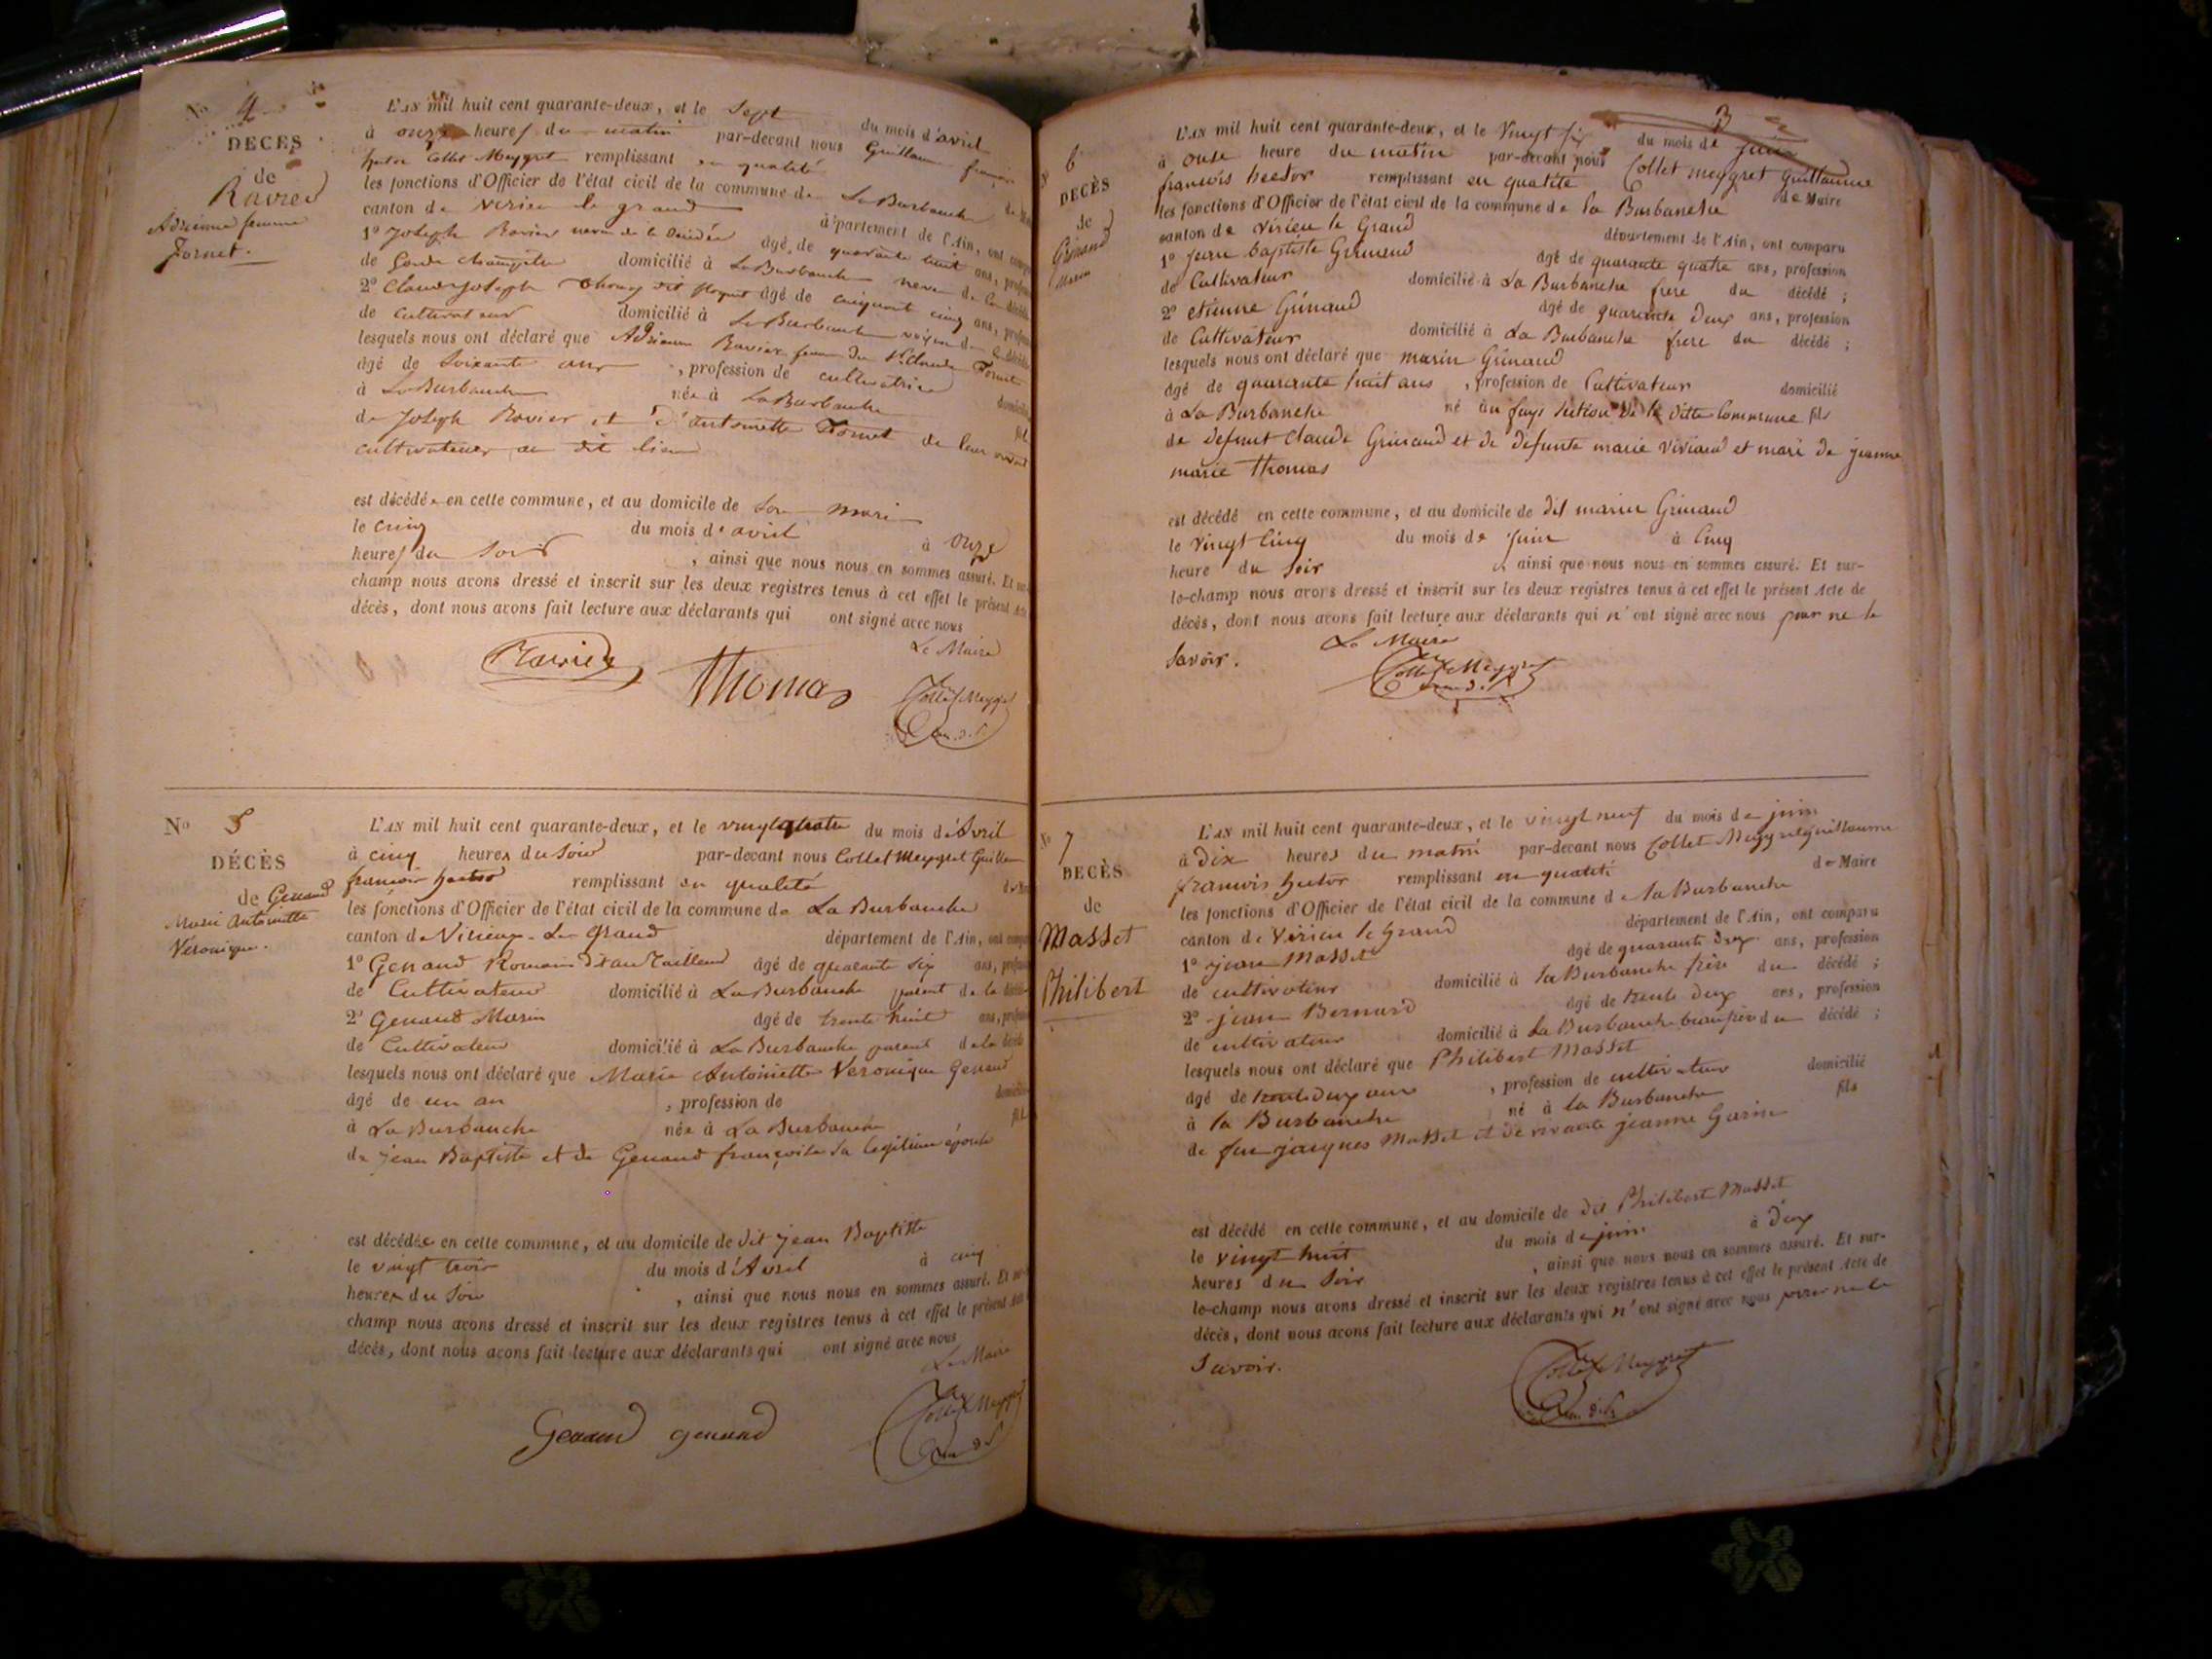 No 4
DECES
de
Ravier
Adrienne femme
Fornet.
L'AN mil huit cent quarante-deux, et le Sept du mois d'avril
à onze heures du matin par-devant nous Guillaume françois
hector Collet Meygret remplissant en qualité de Maire
les fonctions d'Officier de l'état civil de la commune de La Burbanche
canton de Virieu le grand département de l'Ain, ont comparu
1º Joseph Ravier neveu de la décédée âgé de quarante huit ans, profession
de Garde champêtre domicilié à La Burbanche neveu de la décédée
2º Claude Joseph Thomas dit âgé de cinquante cinq ans, profession
de cultivateur domicilié à La Burbanche voisin de la décédée
lesquels nous ont déclaré que Adrienne Ravier femme du Sr. Claude Fornet
âgé de Soixante ans , profession de cultivatrice domicilié
à La Burbanche née à La Burbanche fil
de Joseph Ravier et d'antoinette Fornet de leur vivant
cultivateurs au dit lieu
est décédée en cette commune, et au domicile de Son mari
le cinq du mois d'avril à onze
heures du Soir , ainsi que nous nous en sommes assuré. Et sur-
champ nous avons dressé et inscrit sur les deux registres tenus à cet effet le présent Acte
décès, dont nous avons fait lecture aux déclarants qui ont signé avec nous
Le Maire
Ravier Thomas Collet Meygret
No 5
DÉCÈS
de Genand
Marie Antoinette
Véronique.
L'AN mil huit cent quarante-deux, et le vingt quatre du mois d'Avril
à cinq heures du Soir par-devant nous Collet Meygret Guillaume
francois hector remplissant en qualité de Maire
les fonctions d'Officier de l'état civil de la commune de La Burbanche
canton de Virieux-Le Grand département de l'Ain, ont comparu
1º Genand Romain dit au Taillend âgé de quarante Six ans, profession
de Cultivateur domicilié à La Burbanche parent de la décédée
2º Genand Marin âgé de trente huit ans, profession
de Cultivateur domicilié à La Burbanche parent de la décédée
lesquels nous ont déclaré que Marie Antoinette Veronique Genand
âgé de un an , profession de domicilié
à La Burbanche née à La Burbanche fil
de jean Baptiste et de Genand françoise Sa legitime épouse
est décédée en cette commune, et au domicile de dit jean Baptiste
le vingt trois du mois d'Avril à cinq
heures du Soir , ainsi que nous nous en sommes assuré. Et sur-
champ nous avons dressé et inscrit sur les deux registres tenus à cet effet le présent Acte
décès, dont nous avons fait lecture aux déclarants qui ont signé avec nous
Le Maire
Genand genand Collet Meygret
3
6
DÉCÈS
de
Grinand
Marin
L'AN mil huit cent quarante-deux, et le Vingt Six du mois de juin
à onse heure du matin par-devant nous Collet meygret Guillaume
francois hector remplissant en qualité de Maire
les fonctions d'Officier de l'état civil de la commune de la Burbanche
canton de Virieu le Grand département de l'Ain, ont comparu
1º jean baptiste Grinand âgé de quarante quatre ans, profession
de Cultivateur domicilié à La Burbanche frere du décédé ;
2º etienne Grinand âgé de quarante deux ans, profession
de Cultivateur domicilié à La Burbanche frere du décédé ;
lesquels nous ont déclaré que marin Grinand
âgé de quarante huit ans , profession de Cultivateur domicilié
à La Burbanche né au fays Section de la ditte Commune fils
de defunt Claude Grinand et de défunte marie Viviand et mari de jeanne
marie thomas
est décédé en cette commune, et au domicile de dit marin Grinand
le vingt cinq du mois de juin à Cinq
heure du Soir , ainsi que nous nous en sommes assuré. Et sur-
le-champ nous avons dressé et inscrit sur les deux registres tenus à cet effet le présent Acte de
décès, dont nous avons fait lecture aux déclarants qui n'ont signé avec nous pour ne le
Savoir. Le Maire
Collet Meygret
No 7
DECÈS
de
Masset
Philibert
L'AN mil huit cent quarante-deux, et le vingt neuf du mois de juin
à dix heures du matin par-devant nous Collet Meygret guillaume
francois hector remplissant en qualité de Maire
les fonctions d'Officier de l'état civil de la commune de la Burbanche
canton de Virieu le Grand département de l'Ain, ont comparu
1º jean Masset âgé de quarante deux ans, profession
de cultivateur domicilié à la Burbanche frère du décédé ;
2º jean Bernard âgé de trente deux ans, profession
de cultivateur domicilié à La Burbanche beau frère du décédé ;
lesquels nous ont déclaré que Philibert Masset
âgé de trente deux ans , profession de cultivateur domicilié
à la Burbanche né à la Burbanche fils
de feu jacques Masset et de vivante jeanne Garin
est décédé en cette commune, et au domicile de dit Philibert Masset
le vingt huit du mois de juin à deux
heures du Soir , ainsi que nous nous en sommes assuré. Et sur-
le-champ nous avons dressé et inscrit sur les deux registres tenus à cet effet le présent Acte de
décès, dont nous avons fait lecture aux déclarants qui n'ont signé avec nous pour ne le
Savoir.
Collet Meygret